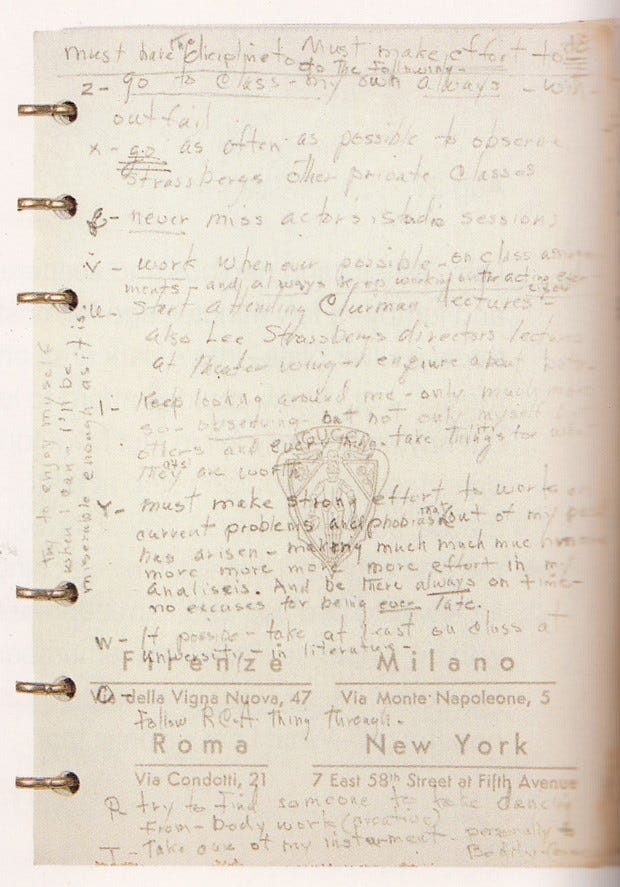 must have the dicipline to do the following -
Must make effort to
z - go to class - my own always - with-
out fail
x - go as often as possible to observe
Strassberg's other private classes
g - never miss actor's studio sessions
v - work when ever possible - on class assign-
ments - and always keep working on the acting exer-
cises
u - start attending Clurman lectures -
also Lee Strassberg's directors lectures
at theater wing - enquire about both
l - keep looking around me - only much more
so - observing - but not only myself but
others and everything - take things for what
they are worth
Y - must make strong effort to work on
current problems and phobias that out of my past
has arisen - making much much much
more more more more more effort in my
analiseis. And be there always on time -
no excuses for being ever late.
w - If possible - take at least one class at
university - in literature -
Firenze Milano
Via della Vigna Nuova, 47 Via Monte Napoleone, 5
O - Follow R.C.A. thing through.
Roma New York
Via Condotti, 21 7 East 58th Street at Fifth Avenue
P try to find someone to take dancing
from - body work (creative)
T - Take care of my instrument - personally &
Bodily
try to enjoy myself
when I can - I'll be
miserable enough as it is.
GUCCI